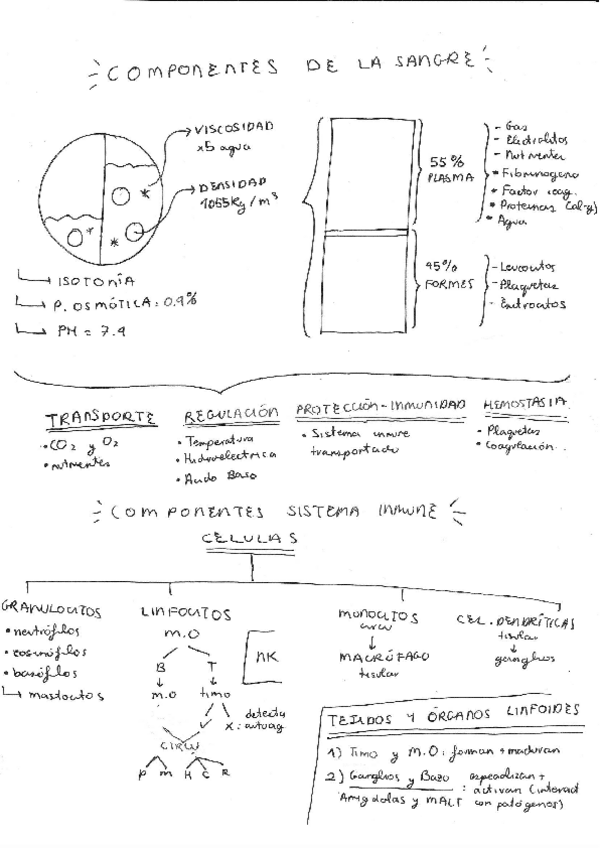 COMPONENTES DE LA SANGRE
VISCOSIDAD
x5 agua
DENSIDAD
1055Kg/m³
ISOTONÍA
P. OSMÓTICA: 0.9%
PH = 7.4
55%
PLASMA
- Gas
- Electrolitos
- Nutrientes
• Fibrinogeno
• Factor coag.
• Proteinas (al-y)
• Agua
45%
FORMES
- Leucocitos
- Plaquetas
- Eritrocitos
TRANSPORTE
• CO2 y O2
• nutrientes
REGULACIÓN
• Temperatura
• Hidroelectrica
• Acido Base
PROTECCIÓN-INMUNIDAD
• Sistema inmune
transportado
HEMOSTASIA
• Plaquetas
• coagulación
COMPONENTES SISTEMA INMUNE
CELULAS
GRANULOCITOS
• neutrófilos
• eosinófilos
• basófilos
mastocitos
LINFOCITOS
M.O
B T
M.O timo
NK
detecta
X: autoag
CIRCU
P M H C R
MONOCITOS
circu
MACRÓFAGO
tisular
CEL. DENDRÍTICAS
tisular
ganglios
TEJIDOS Y ÓRGANOS LINFOIDES
1) Timo y M.O: forman + maduran
2) Ganglios y Bazo especializan +
: activan (interact
Amigdalas y MALT con patógenos)